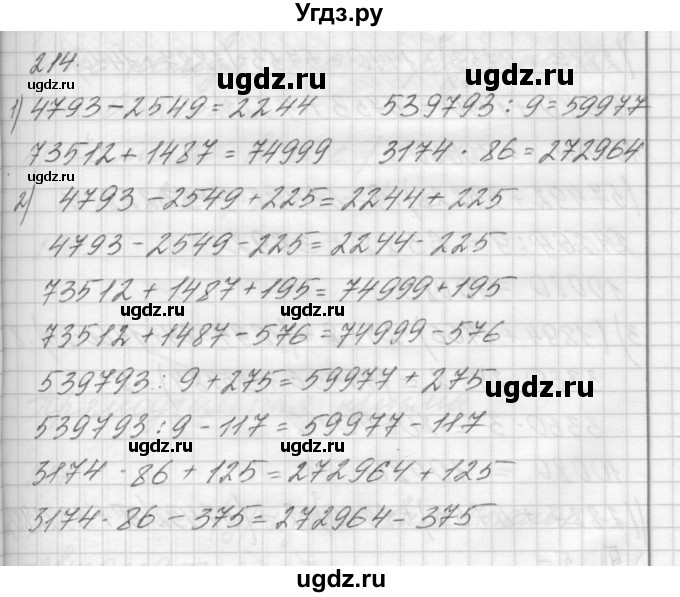 Угдз.ру
214.
ugdz.ru ugdz.ru
1) 4793-2549=2244 539793:9=59977
ugdz.ru
73512+1487=74999 3174·86=272964
ugdz.ru ugdz.ru
2) 4793-2549+225=2244+225
4793-2549-225=2244-225
73512+1487+195=74999+195
ugdz.ru ugdz.ru
73512+1487-576=74999-576
539793:9+275=59977+275
ugdz.ru
539793:9-117=59977-117
ugdz.ru ugdz.ru
3174·86+125=272964+125
3174·86-375=272964-375
ugdz.ru